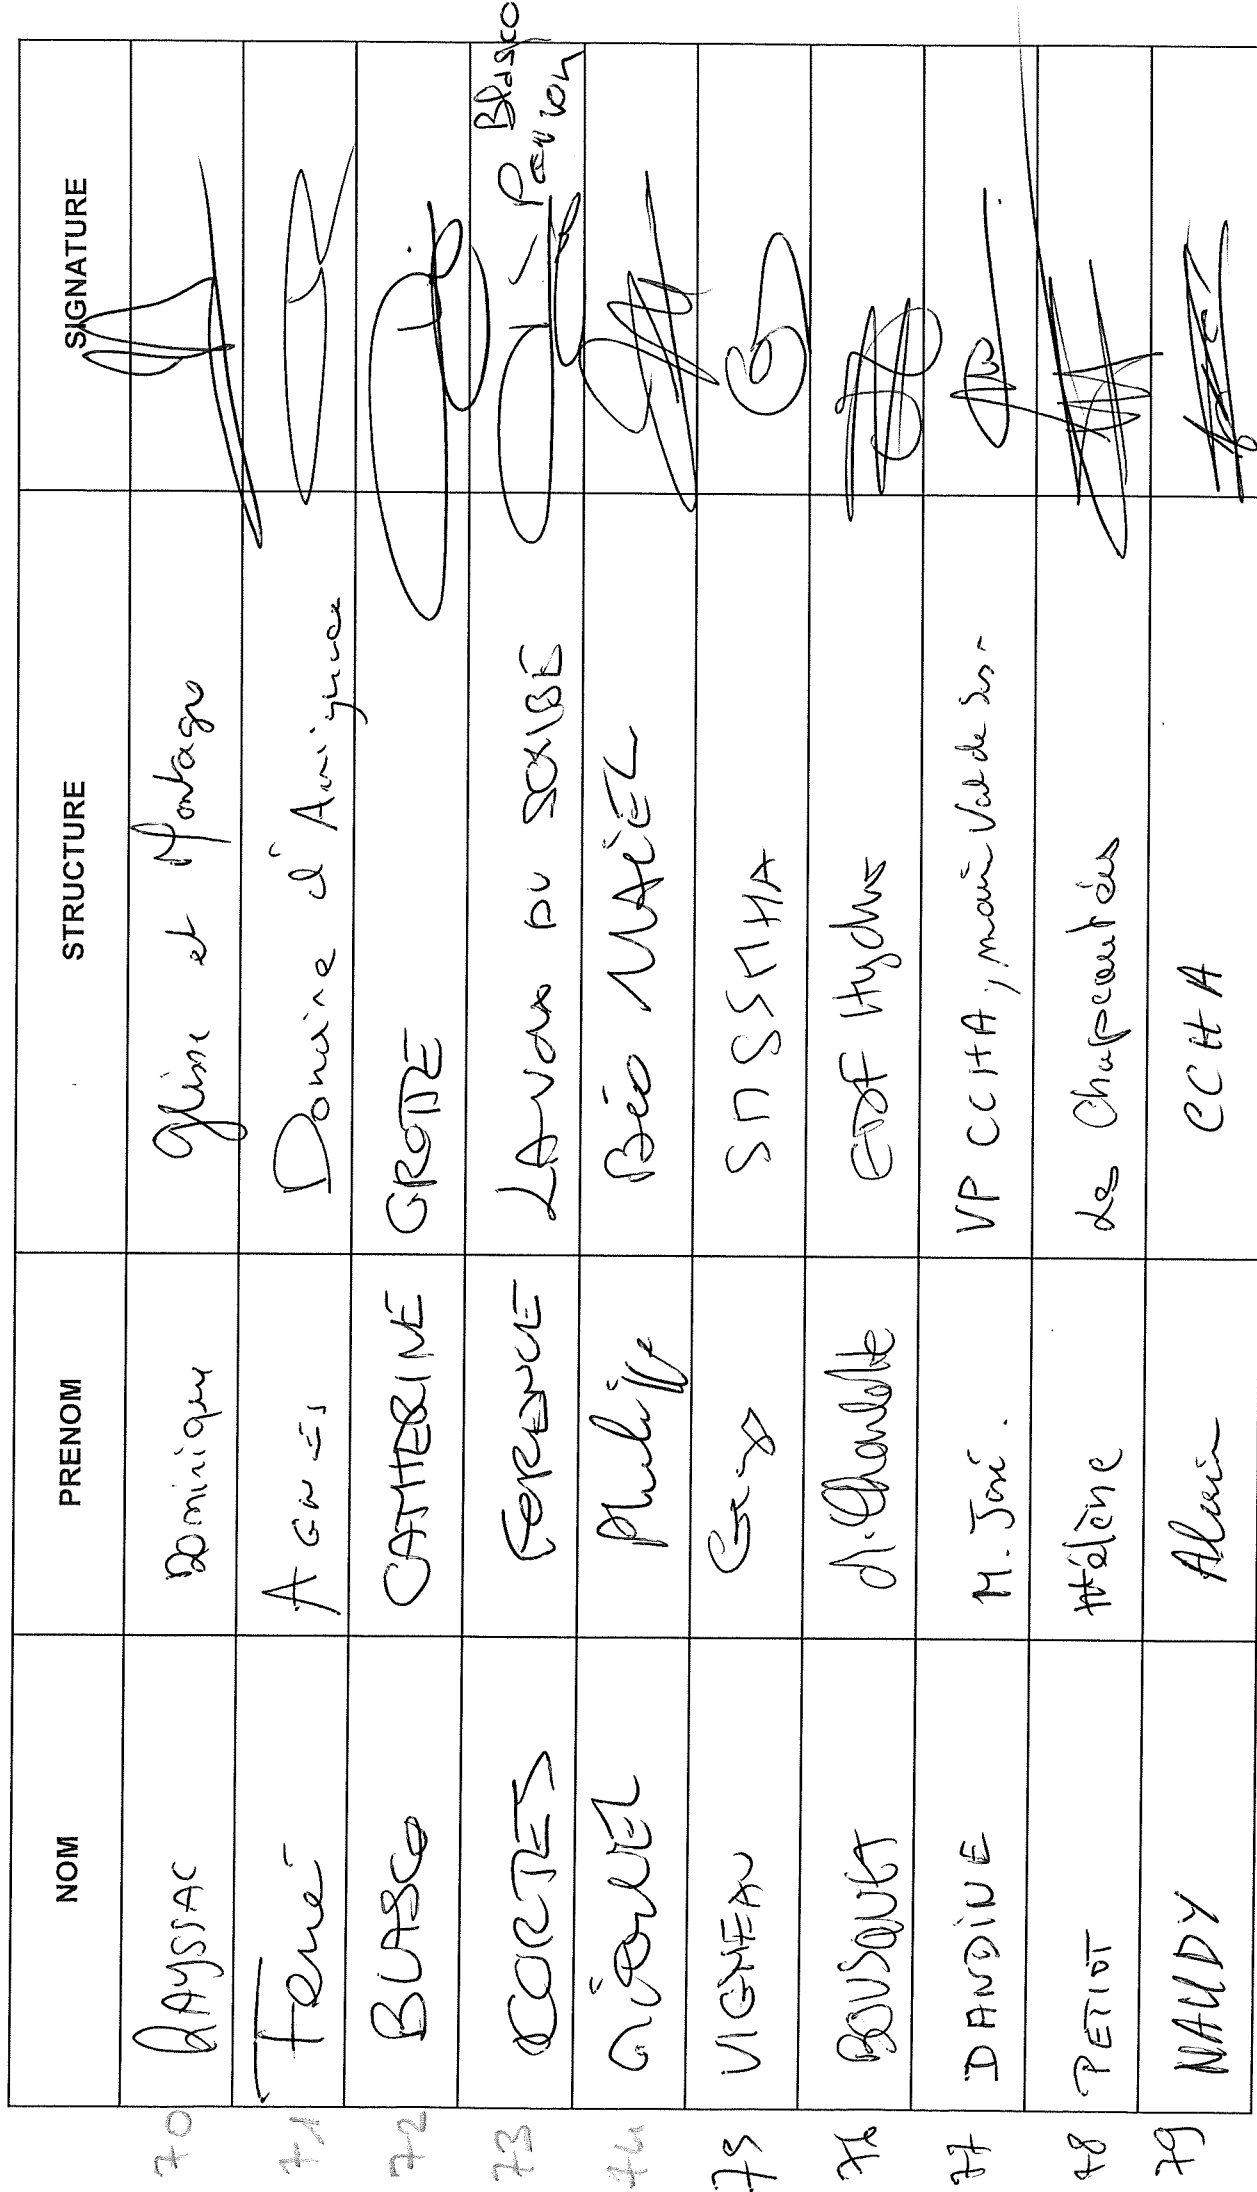 NOM PRENOM STRUCTURE SIGNATURE
70 RAYSSAC Dominique Glisse et Montagne
71 Ferré AGNÈS Domaine d'Amiguet
72 BLASCO CATHERINE GROTTE
73 CORTES FLORENCE LA VOIX DU SCRIBE Blasco
74 Philippe Béo
75 VIGNEAU SMSSMHA
76 BOUSQUET M. Charlotte EDF Hydro
77 DANDINE M. José. VP CCHA, maire Val de Sos-
78 PETIOT Hélène de Chapeautés
79 NAUDY Alain CCHA